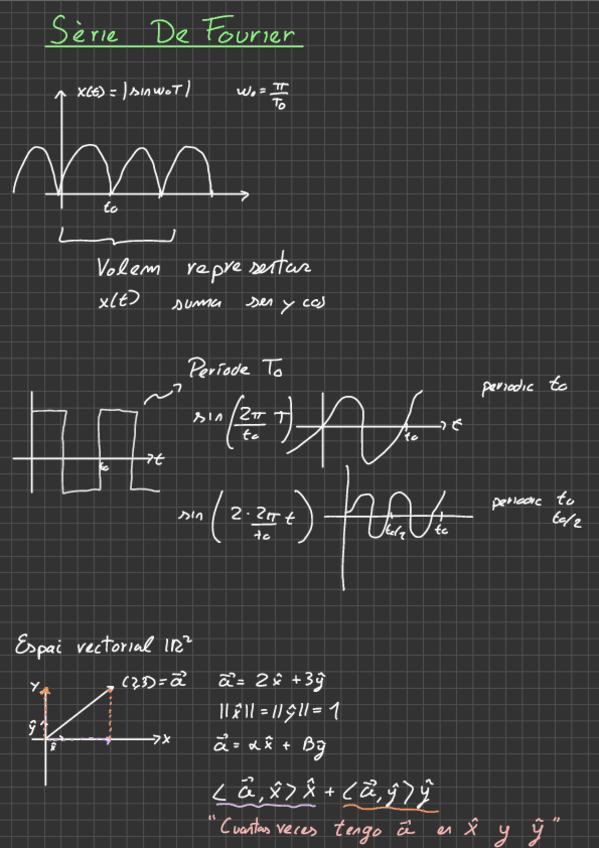 Sèrie De Fourier
x(t) = |sin w₀T| w₀ = π/T₀
t₀
Volem representar
x(t) suma sen y cos
Període T₀
t₀ t
sin(2π/t₀ T) t₀ t periodic t₀
sin(2·2π/t₀ t) t₀/2 t₀ periodic t₀
t₀/2
Espai vectorial ℝ²
y (2,3) = a⃗ a⃗ = 2x̂ + 3ŷ
||x̂|| = ||ŷ|| = 1
ŷ x̂ x a⃗ = αx̂ + βŷ
<a⃗, x̂>x̂ + <a⃗, ŷ>ŷ
"Cuantas veces tengo a⃗ en x̂ y ŷ"